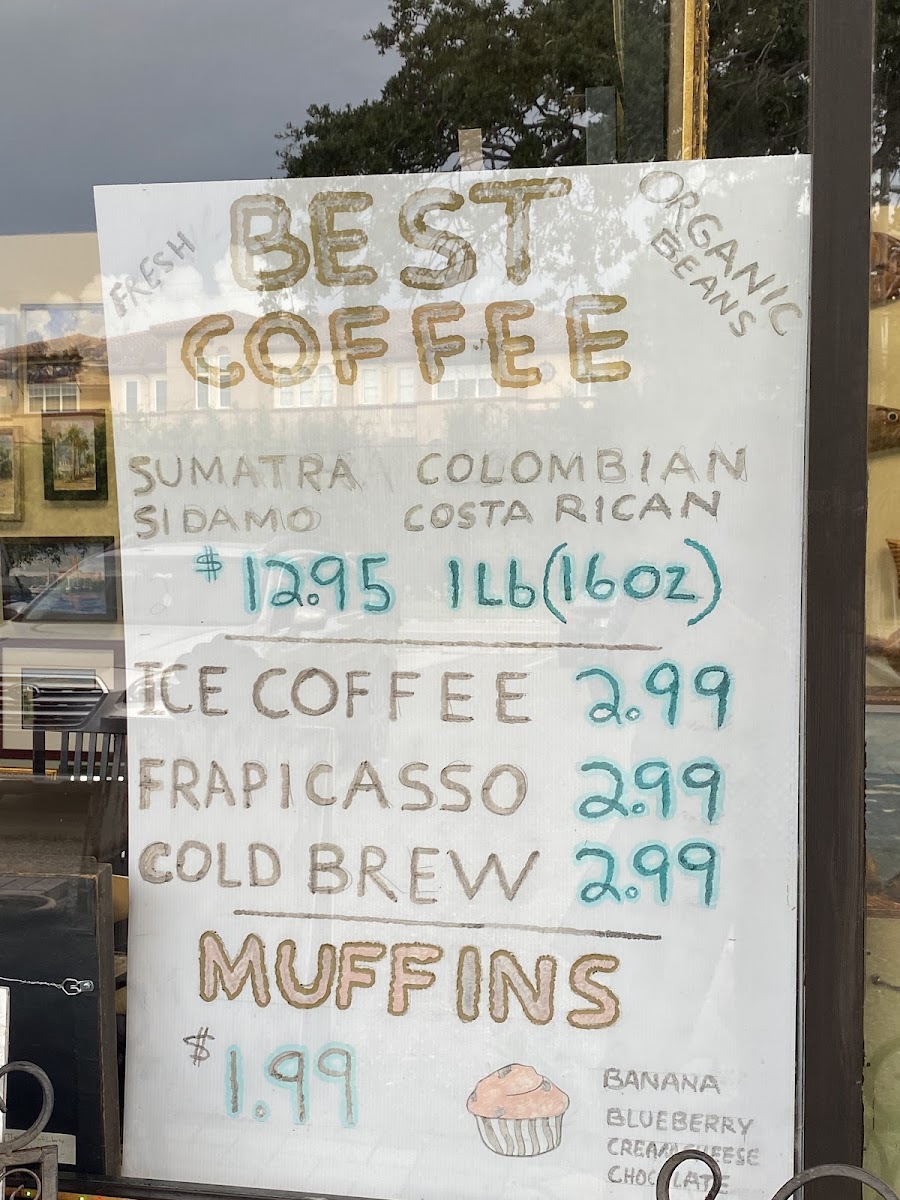 FRESH
BEST
COFFEE
ORGANIC
BEANS
SUMATRA COLOMBIAN
SIDAMO COSTA RICAN
$12.95 1Lb(16oz)
ICE COFFEE 2.99
FRAPICASSO 2.99
COLD BREW 2.99
MUFFINS
$1.99
BANANA
BLUEBERRY
CREAMCHEESE
CHOCLATE